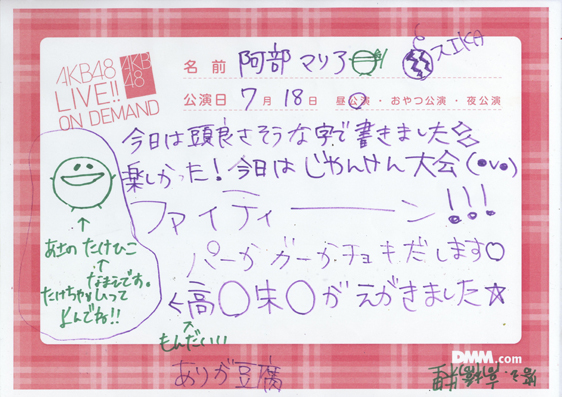 AKB48
LIVE!!
ON DEMAND
AKB
48
名前 阿部マリア
スイカ
公演日 7月18日 昼公演・おやつ公演・夜公演
今日は頭良さそうな字で書きました
楽しかった!今日はじゃんけん大会(●v●)
ファイティーーン!!!
パーかガーかチョキだします♡
←高〇朱〇がえがきました☆
↑
もんだいい
ありが豆腐
↑
あさの たけひこ
↑
なまえです。
たけちゃんって
よんでね!!
DMM.com